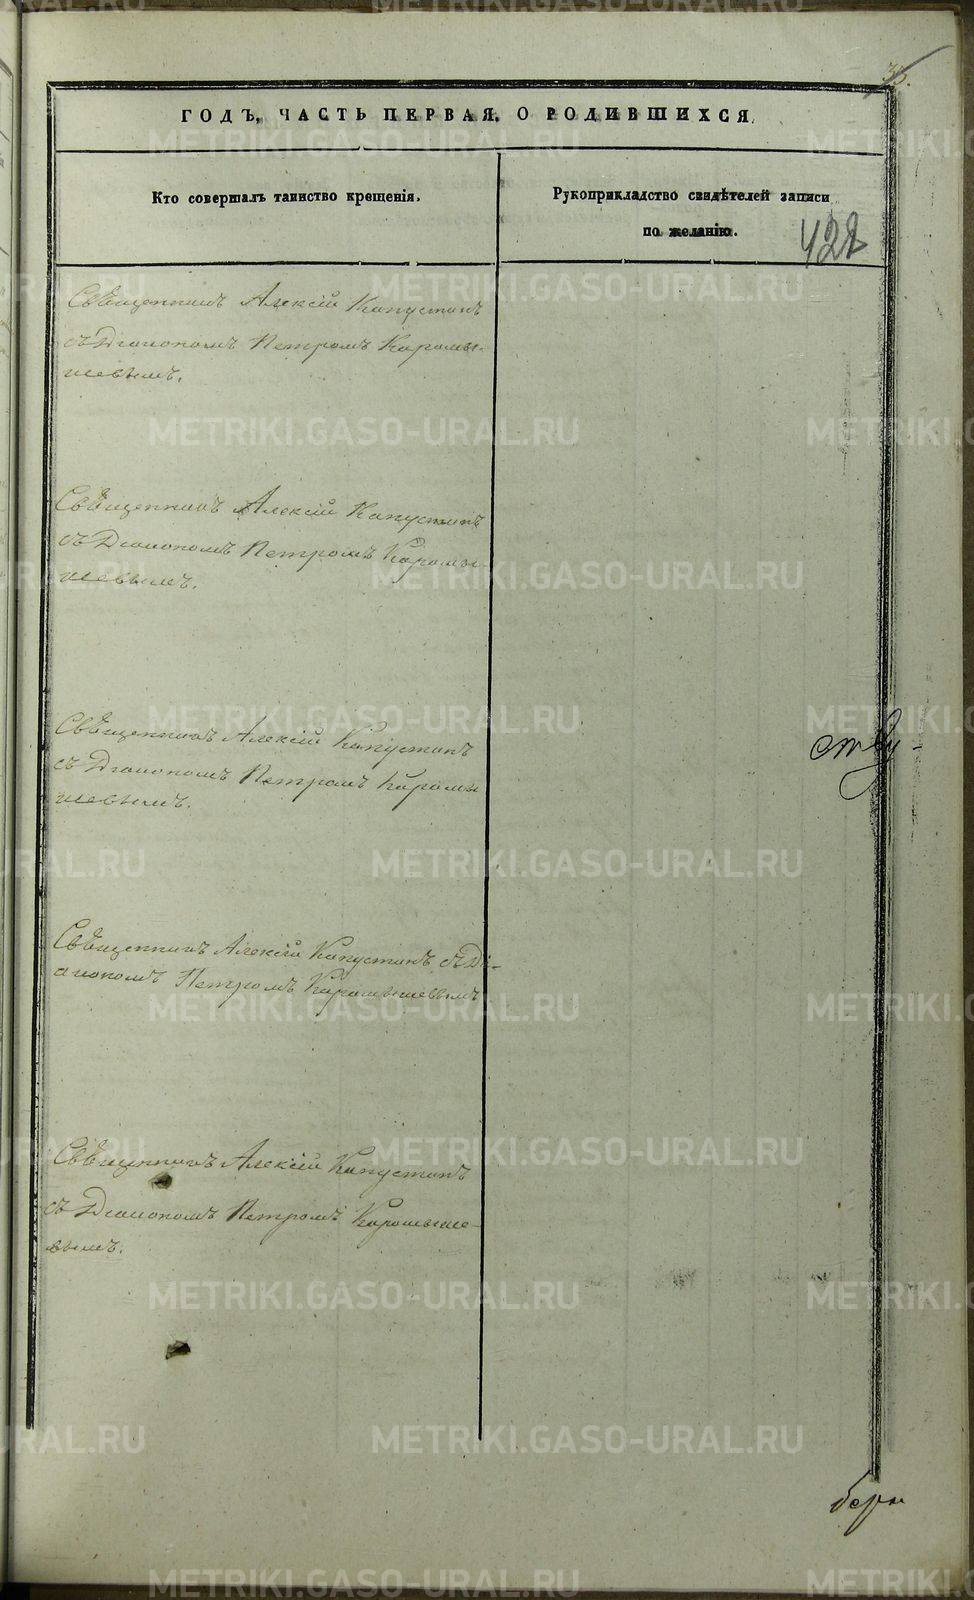 35.
ГОДЪ, ЧАСТЬ ПЕРВАЯ, О РОДИВШИХСЯ.
Кто совершалъ таинство крещенія.
Рукоприкладство свидѣтелей записи
по желанію.
428
Священникъ Алексій Капустинъ
съ Діакономъ Петромъ Каромы-
шевымъ.
Священникъ Алексій Капустинъ
съ Діакономъ Петромъ Каромы-
шевымъ.
Священникъ Алексій Капустинъ
съ Діакономъ Петромъ Каромы
шевымъ.
Священникъ Алексій Капустинъ съ Ді-
акономъ Петромъ Каромышевымъ
Священникъ Алексій Капустинъ
съ Діакономъ Петромъ Каромыше-
вымъ.
METRIKI.GASO-URAL.RU